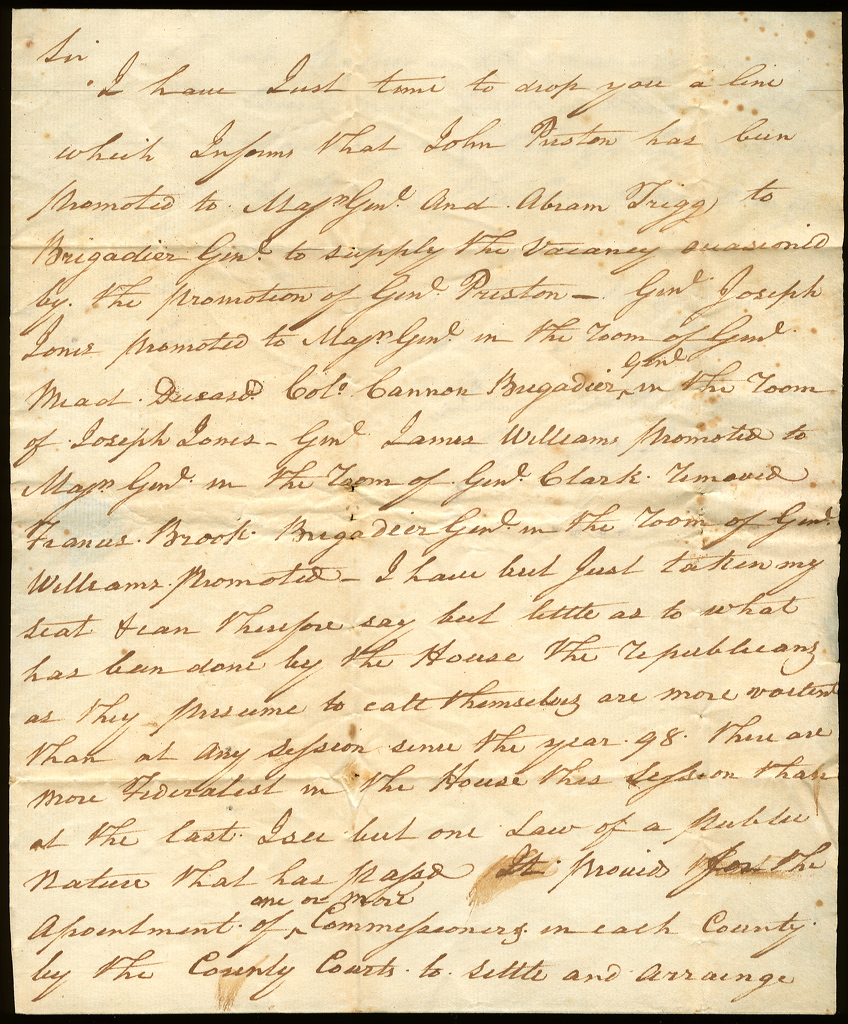 Sir
I have Just time to drop you a line
which Informs that John Preston has been
promoted to Majr Genl. And Abram Trigg to
Brigadier Genl. to supply the Vacancy occasioned
by the promotion of Genl. Preston — Genl. Joseph
Jones promoted to Majr Genl. in the room of Genl.
Mead Deceasd. Colo. Cannon Brigadier ^ Genl. in the room
of Joseph Jones - Genl. James Williams promoted to
Majr Genl. in the room of Genl. Clark removed
Francis Brook Brigadier Genl. in the room of Genl.
Williams promoted — I have but Just taken my
seat & can therefore say but little as to what
has been done by the House the republicans
as they presume to call themselves are more
than at any session since the year 98. there are
more Federalist in the House this Session than
at the last. I see but one Law of a publick
Nature that has passd It provides for the
Apointment of ^ one or more Commissioners in each County
by the County Courts to settle and arrainge